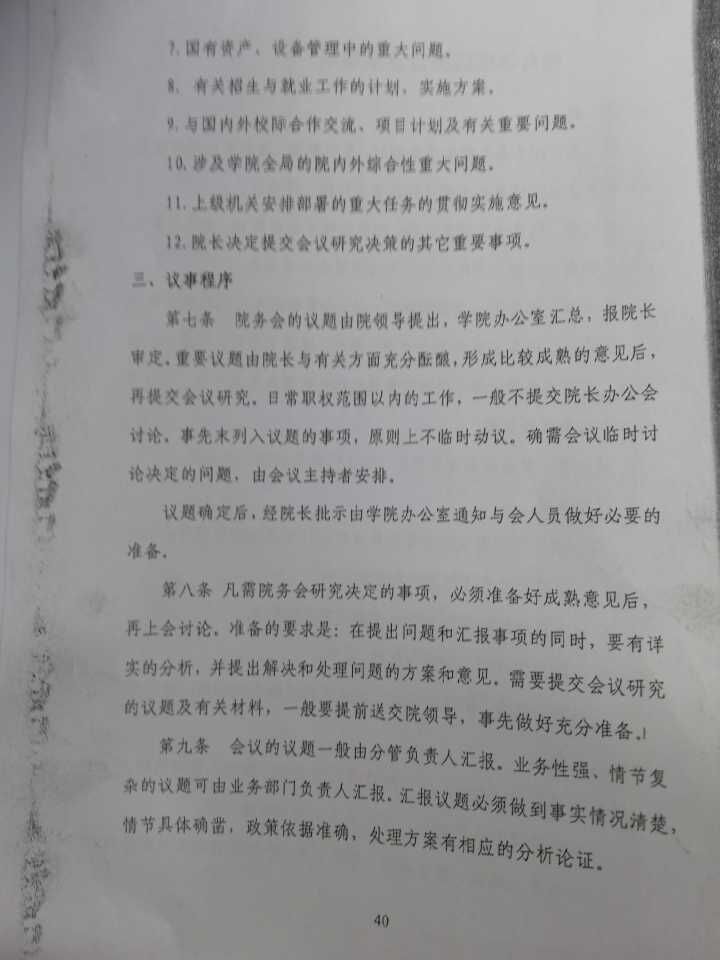 7.国有资产、设备管理中的重大问题。
8、有关招生与就业工作的计划、实施方案。
9.与国内外校际合作交流、项目计划及有关重要问题。
10.涉及学院全局的院内外综合性重大问题。
11.上级机关安排部署的重大任务的贯彻实施意见。
12.院长决定提交会议研究决策的其它重要事项。
三、议事程序
第七条 院务会的议题由院领导提出，学院办公室汇总，报院长
审定。重要议题由院长与有关方面充分酝酿，形成比较成熟的意见后，
再提交会议研究。日常职权范围以内的工作，一般不提交院长办公会
讨论。事先末列入议题的事项，原则上不临时动议。确需会议临时讨
论决定的问题，由会议主持者安排。
议题确定后，经院长批示由学院办公室通知与会人员做好必要的
准备。
第八条 凡需院务会研究决定的事项，必须准备好成熟意见后，
再上会讨论。准备的要求是：在提出问题和汇报事项的同时，要有详
实的分析，并提出解决和处理问题的方案和意见。需要提交会议研究
的议题及有关材料，一般要提前送交院领导，事先做好充分准备。
第九条 会议的议题一般由分管负责人汇报。业务性强、情节复
杂的议题可由业务部门负责人汇报。汇报议题必须做到事实情况清楚，
情节具体确凿，政策依据准确，处理方案有相应的分析论证。
40